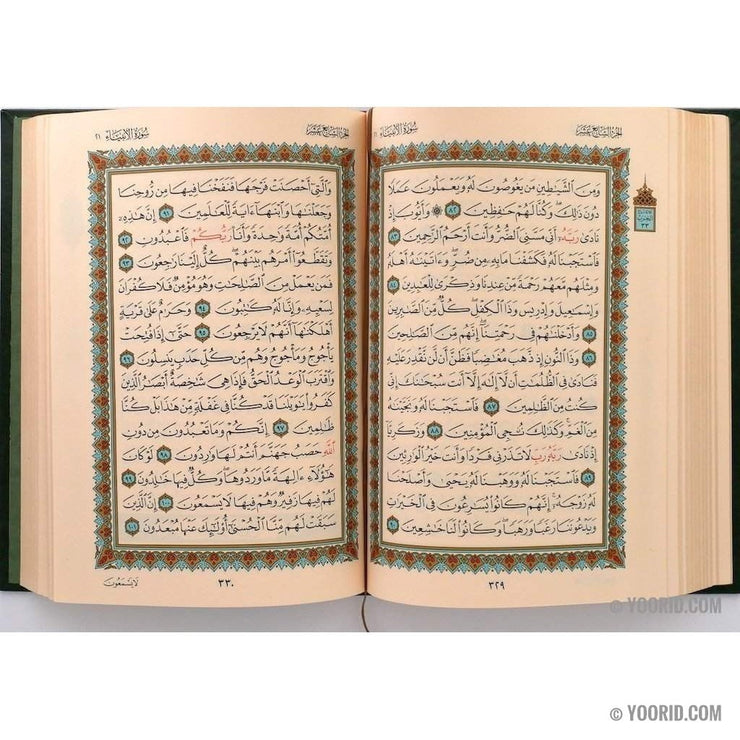 سُورَةُ الأَنبِيَاءِ ٢١
الجُزْءُ السَّابِعَ عَشَرَ
وَمِنَ ٱلشَّيَٰطِينِ مَن يَغُوصُونَ لَهُۥ وَيَعْمَلُونَ عَمَلًا
دُونَ ذَٰلِكَۖ وَكُنَّا لَهُمْ حَٰفِظِينَ ٨٢ ۞ وَأَيُّوبَ إِذْ
نَادَىٰ رَبَّهُۥٓ أَنِّى مَسَّنِىَ ٱلضُّرُّ وَأَنتَ أَرْحَمُ ٱلرَّٰحِمِينَ ٨٣
فَٱسْتَجَبْنَا لَهُۥ فَكَشَفْنَا مَا بِهِۦ مِن ضُرٍّۖ وَءَاتَيْنَٰهُ أَهْلَهُۥ
وَمِثْلَهُم مَّعَهُمْ رَحْمَةً مِّنْ عِندِنَا وَذِكْرَىٰ لِلْعَٰبِدِينَ ٨٤
وَإِسْمَٰعِيلَ وَإِدْرِيسَ وَذَا ٱلْكِفْلِۖ كُلٌّ مِّنَ ٱلصَّٰبِرِينَ
٨٥ وَأَدْخَلْنَٰهُمْ فِى رَحْمَتِنَآۖ إِنَّهُم مِّنَ ٱلصَّٰلِحِينَ
٨٦ وَذَا ٱلنُّونِ إِذ ذَّهَبَ مُغَٰضِبًا فَظَنَّ أَن لَّن نَّقْدِرَ عَلَيْهِ
فَنَادَىٰ فِى ٱلظُّلُمَٰتِ أَن لَّآ إِلَٰهَ إِلَّآ أَنتَ سُبْحَٰنَكَ إِنِّى
كُنتُ مِنَ ٱلظَّٰلِمِينَ ٨٧ فَٱسْتَجَبْنَا لَهُۥ وَنَجَّيْنَٰهُ
مِنَ ٱلْغَمِّۚ وَكَذَٰلِكَ نُۨجِى ٱلْمُؤْمِنِينَ ٨٨ وَزَكَرِيَّآ
إِذْ نَادَىٰ رَبَّهُۥ رَبِّ لَا تَذَرْنِى فَرْدًا وَأَنتَ خَيْرُ ٱلْوَٰرِثِينَ ٨٩
فَٱسْتَجَبْنَا لَهُۥ وَوَهَبْنَا لَهُۥ يَحْيَىٰ وَأَصْلَحْنَا
لَهُۥ زَوْجَهُۥٓۚ إِنَّهُمْ كَانُوا۟ يُسَٰرِعُونَ فِى ٱلْخَيْرَٰتِ
وَيَدْعُونَنَا رَغَبًا وَرَهَبًاۖ وَكَانُوا۟ لَنَا خَٰشِعِينَ ٩٠
٣٢٩
سُورَةُ الأَنبِيَاءِ ٢١
الجُزْءُ السَّابِعَ عَشَرَ
وَٱلَّتِىٓ أَحْصَنَتْ فَرْجَهَا فَنَفَخْنَا فِيهَا مِن رُّوحِنَا
وَجَعَلْنَٰهَا وَٱبْنَهَآ ءَايَةً لِّلْعَٰلَمِينَ ٩١ إِنَّ هَٰذِهِۦٓ
أُمَّتُكُمْ أُمَّةً وَٰحِدَةً وَأَنَا۠ رَبُّكُمْ فَٱعْبُدُونِ ٩٢
وَتَقَطَّعُوٓا۟ أَمْرَهُم بَيْنَهُمْۖ كُلٌّ إِلَيْنَا رَٰجِعُونَ ٩٣
فَمَن يَعْمَلْ مِنَ ٱلصَّٰلِحَٰتِ وَهُوَ مُؤْمِنٌ فَلَا كُفْرَانَ
لِسَعْيِهِۦ وَإِنَّا لَهُۥ كَٰتِبُونَ ٩٤ وَحَرَٰمٌ عَلَىٰ قَرْيَةٍ
أَهْلَكْنَٰهَآ أَنَّهُمْ لَا يَرْجِعُونَ ٩٥ حَتَّىٰٓ إِذَا فُتِحَتْ
يَأْجُوجُ وَمَأْجُوجُ وَهُم مِّن كُلِّ حَدَبٍ يَنسِلُونَ ٩٦
وَٱقْتَرَبَ ٱلْوَعْدُ ٱلْحَقُّ فَإِذَا هِىَ شَٰخِصَةٌ أَبْصَٰرُ ٱلَّذِينَ
كَفَرُوا۟ يَٰوَيْلَنَا قَدْ كُنَّا فِى غَفْلَةٍ مِّنْ هَٰذَا بَلْ كُنَّا
ظَٰلِمِينَ ٩٧ إِنَّكُمْ وَمَا تَعْبُدُونَ مِن دُونِ
ٱللَّهِ حَصَبُ جَهَنَّمَ أَنتُمْ لَهَا وَٰرِدُونَ ٩٨ لَوْ كَانَ
هَٰٓؤُلَآءِ ءَالِهَةً مَّا وَرَدُوهَاۖ وَكُلٌّ فِيهَا خَٰلِدُونَ ٩٩
لَهُمْ فِيهَا زَفِيرٌ وَهُمْ فِيهَا لَا يَسْمَعُونَ ١٠٠ إِنَّ ٱلَّذِينَ
سَبَقَتْ لَهُم مِّنَّا ٱلْحُسْنَىٰٓ أُو۟لَٰٓئِكَ عَنْهَا مُبْعَدُونَ ١٠١
لَا يَسْمَعُونَ
٣٣٠
© YOORID.COM
© YOORID.COM